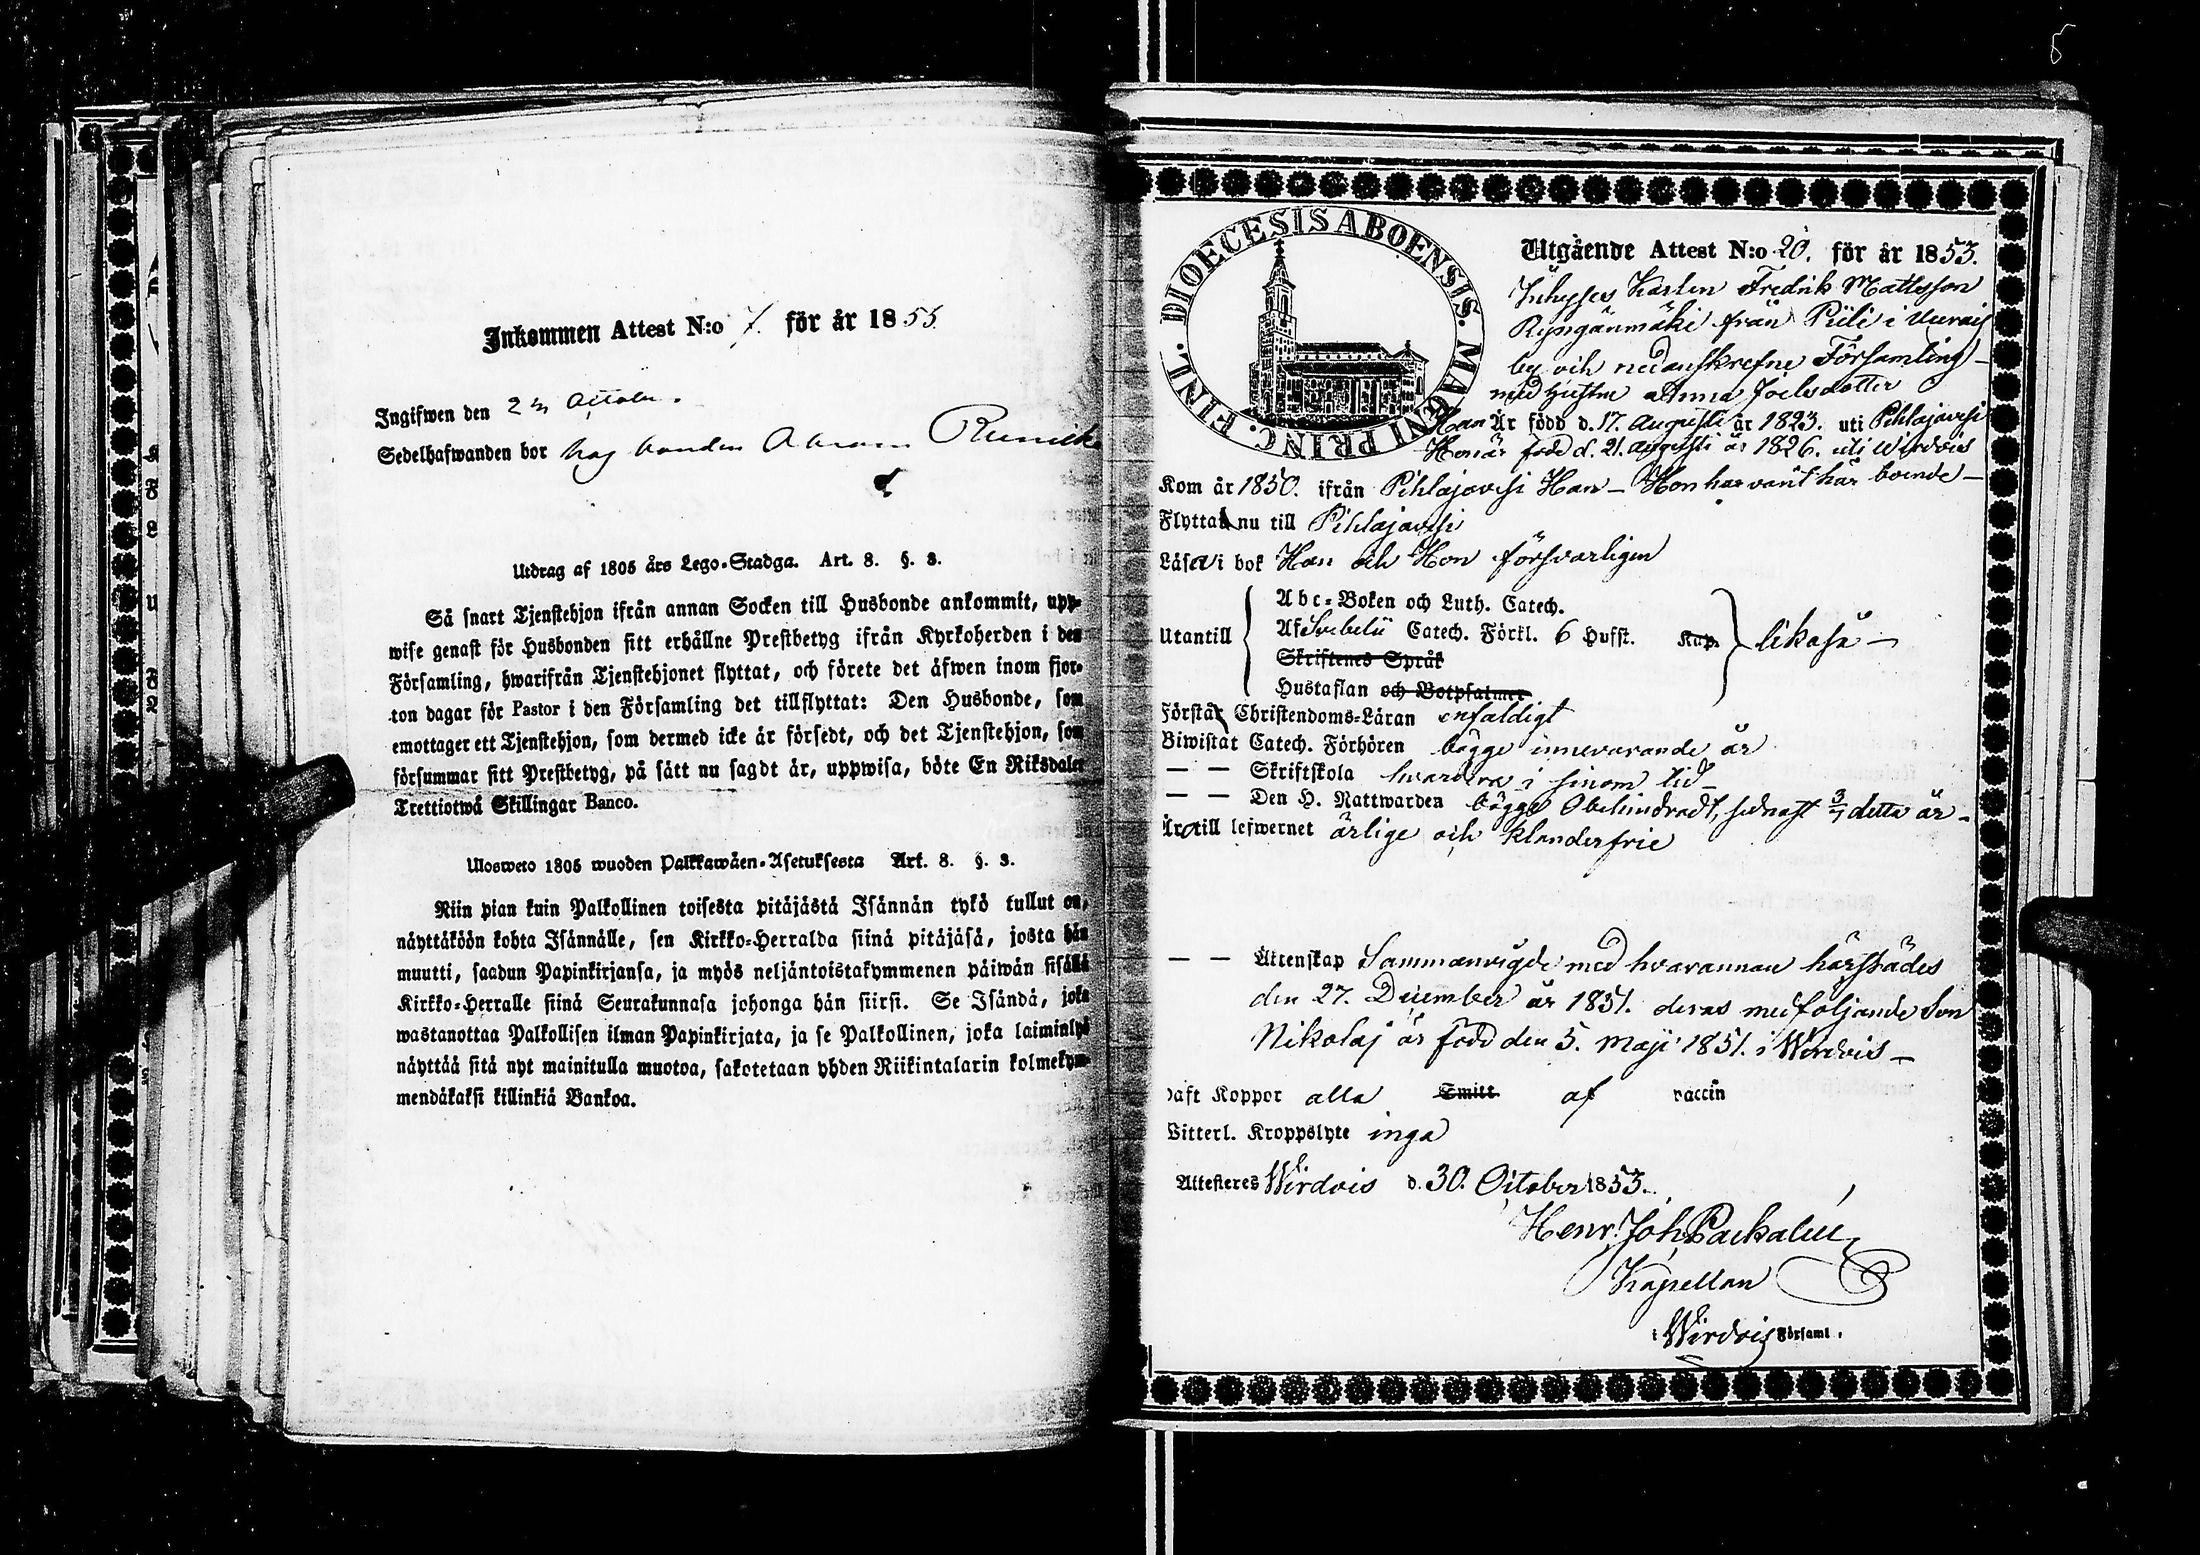 5
Inkommen Attest N:o 7. för år 1855
Ingifwen den 2 Octobr.
Sedelhafwanden bor hos bonden
Utdrag af 1805 års Lego-Stadga. Art. 8. §. 3.
Så snart Tjenstehjon ifrån annan Socken till Husbonde ankommit, upp-
wise genast för Husbonden sitt erhållne Prestbetyg ifrån Kyrkoherden i den
Församling, hwarifrån Tjenstehjonet flyttat, och förete det äfwen inom fjor-
ton dagar för Pastor i den Församling det tillflyttat: Den Husbonde, som
emottager ett Tjenstehjon, som dermed icke är försedt, och det Tjenstehjon, som
försummar sitt Prestbetyg, på sätt nu sagdt är, uppwisa, böte En Riksdaler
Trettiotwå Skillingar Banco.
Ulosweto 1805 wuoden Palkkawäen-Asetuksesta Art. 8. §. 3.
Niin pian kuin Palkollinen toisesta pitäjästä Isännän tykö tullut on,
näyttäköön kohta Isännälle, sen Kirkko-Herralda siinä pitäjäsä, josta hän
muutti, saadun Papinkirjansa, ja myös neljäntoistakymmenen päiwän sisällä
Kirkko-Herralle siinä Seurakunnasa johonga hän siirsi. Se Isändä, joka
wastanottaa Palkollisen ilman Papinkirjata, ja se Palkollinen, joka laiminlyö
näyttää sitä nyt mainitulla muotoa, sakotetaan yhden Riikintalarin kolmekym-
mendäkaksi killinkiä Bankoa.
DIOECESIS ABOENSIS. MAGNI PRINC. FINL.
Utgående Attest N:o 20. för år 1853.
Inhyses Karlen Fredrik Mattsson
från Piili i
by och nedanskrefne Församling –
med hustru Anna Joelsdotter
Han Är född d. 17. Augusti år 1823. uti Pihlajavesi
Hon är född d. 21. Augusti år 1826. uti Wirdois
Kom år 1850. ifrån Pihlajavesi Han – Hon har varit här boende –
Flytta nu till Pihlajavesi
Läsa i bok Han och Hon försvarligen
Utantill
Abc-Boken och Luth. Catech.
Af Svebelii Catech. Förkl. 6 Hufst. Kap.
Skriftenes Språk
Hustaflan och Botpsalmer
likaså –
Förstå Christendoms-Läran enfaldigt
Biwistat Catech. Förhören bägge innevarande år
— — Skriftskola hvardera i sinom tid –
— — Den H. Nattwarden bägge Obehindradt, senast 3/7 detta år –
Äro till lefwernet ärlige och klanderfrie
— — Äktenskap Sammanvigde med hvarannan härstädes
den 27. December år 1851. deras medföljande Son
Nikolaj är född den 5. Maji 1851. i Wirdois –
Haft Koppor alla Smitt af vaccin
Witterl. Kroppslyte inga
Attesteres Wirdois d. 30. October 1853.
Henr. Joh. Packalén
Kapellan
i Wirdois Församl.